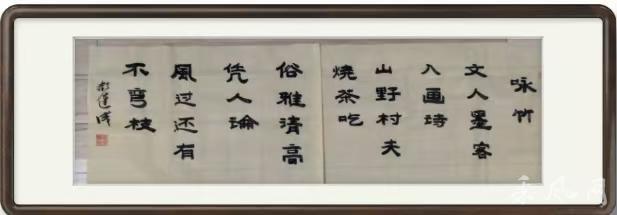 咏竹
文人墨客
入画诗
山野村夫
烧茶吃
俗雅清高
凭人论
風过还有
不弯枝